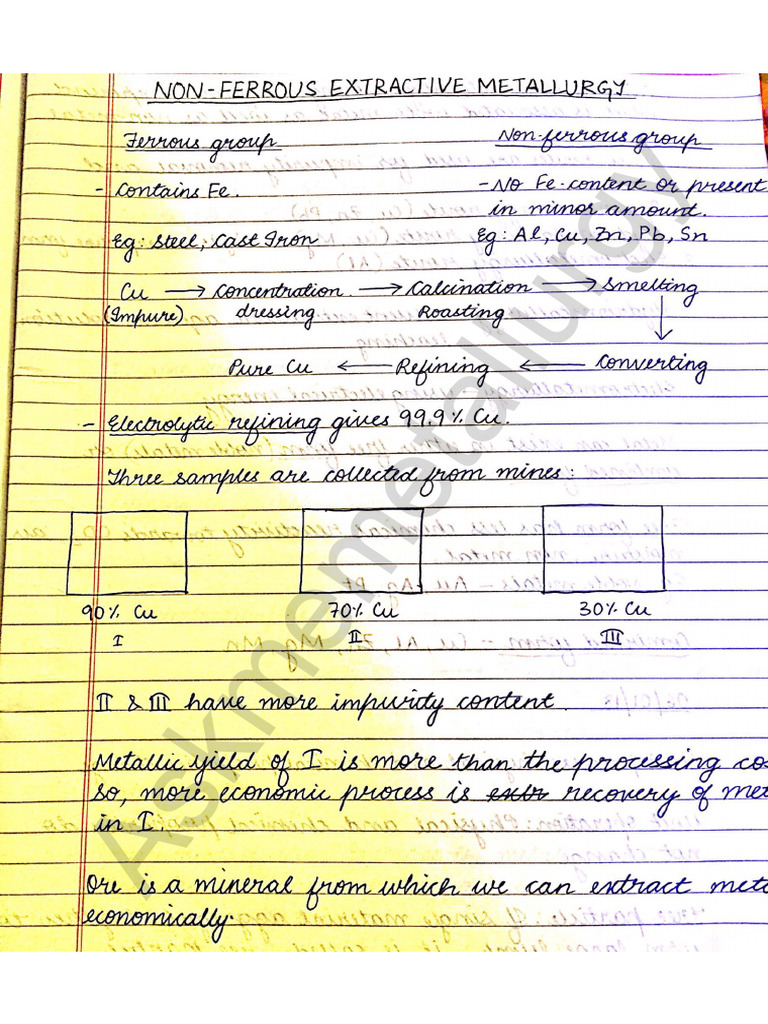 NON-FERROUS EXTRACTIVE METALLURGY
Ferrous group
Non-ferrous group
- Contains Fe.
- No Fe-content or present
in minor amount.
Eg: Steel, Cast Iron
Eg: Al, Cu, Zn, Pb, Sn
Cu → Concentration → Calcination → Smelting
(Impure) dressing Roasting
↓
Pure Cu ← Refining ← Converting
- Electrolytic refining gives 99.9% Cu.
Three samples are collected from mines:
90% Cu 70% Cu 30% Cu
I II III
II & III have more impurity content.
Metallic yield of I is more than the processing co
so, more economic process is recovery of met
in I.
Ore is a mineral from which we can extract meta
economically.
Askmemetallurgy